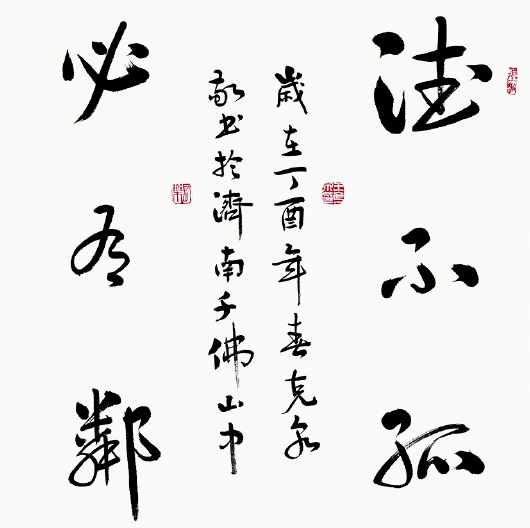 德不孤
歲在丁酉年春克
敬书於濟南千佛山中
必有鄰